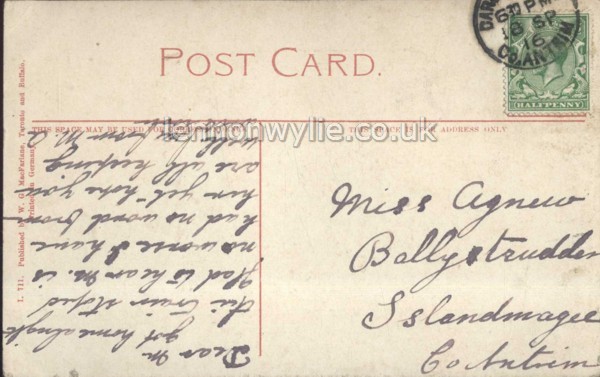 POST CARD.
THIS SPACE MAY BE USED FOR
ADDRESS ONLY
DAR
6 30 PM
18 SP
16
CO. ANTRIM
HALFPENNY
lennonwylie.co.uk
I. 711. Published by W. G. MacFarlane, Toronto and Buffalo.
Printed in Germany
Miss Agnew
Ballystrudden
Islandmagee
Co Antrim
Dear M
got home alright
the train stoped
glad to hear M. is
no worse I have
had no word from
her yet hope you
are all keeping
well from M. A